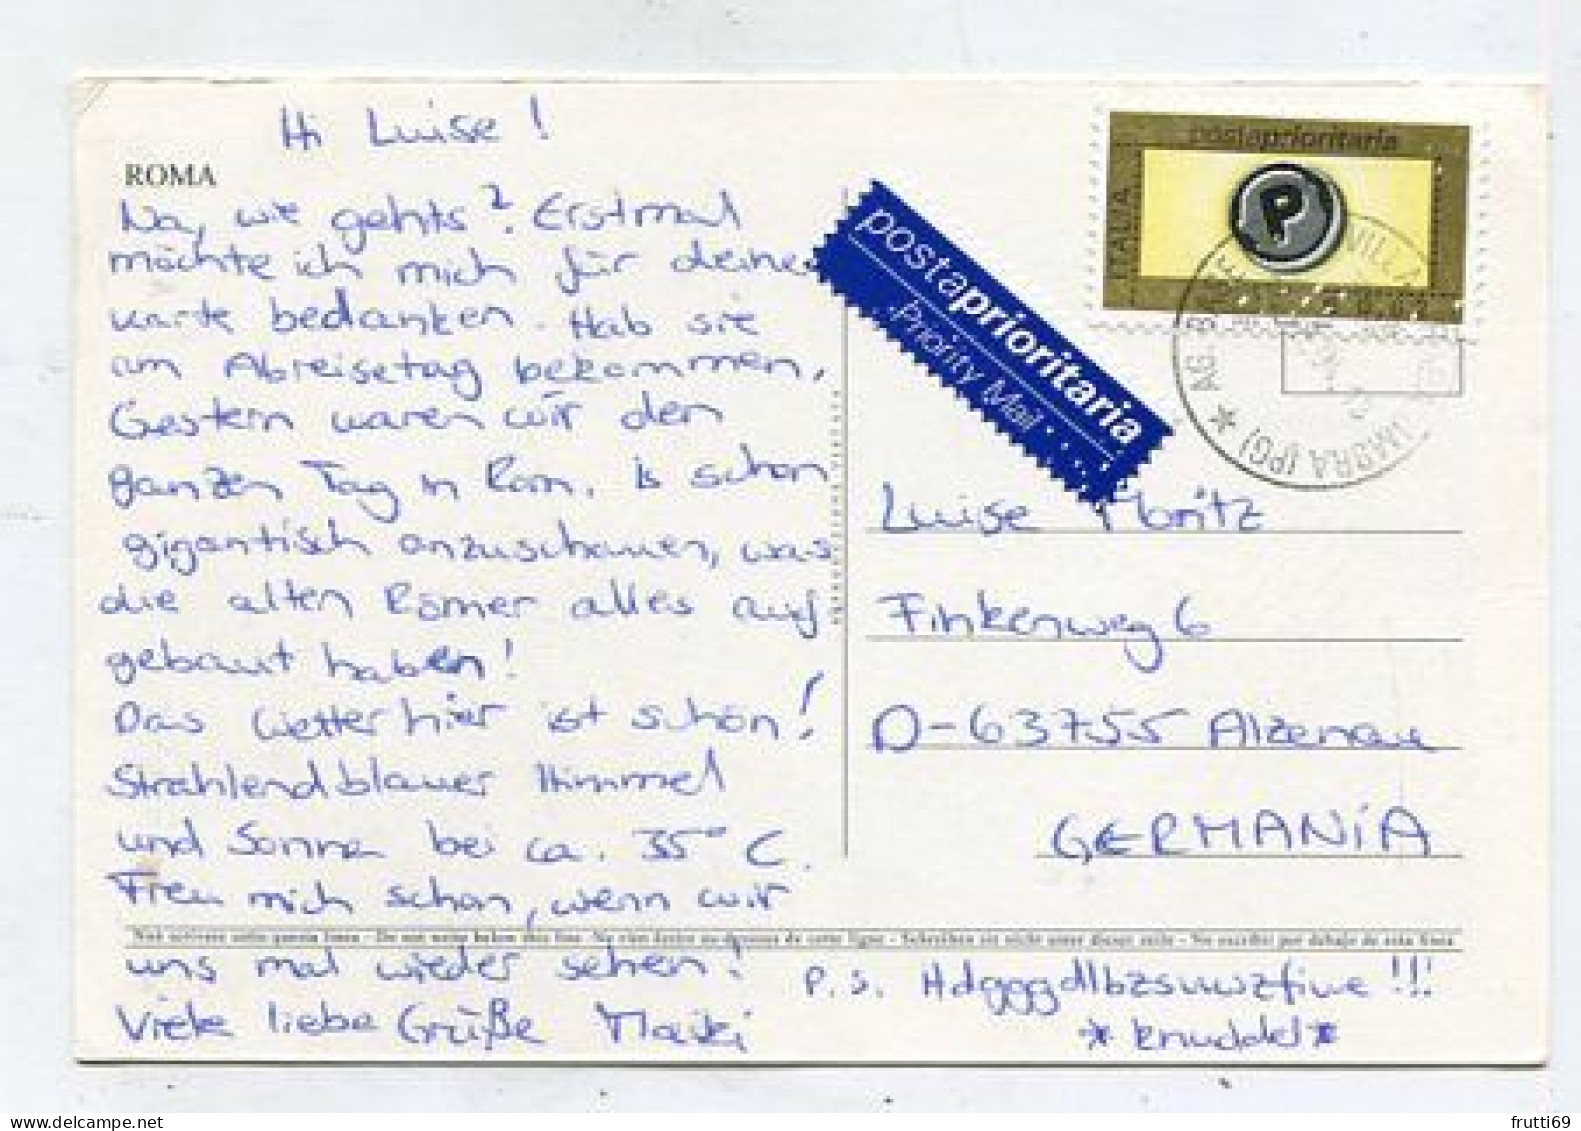 Hi Luise!
ROMA
Na, wie gehts? Erstmal
möchte ich mich für deine
Karte bedanken. Hab sie
am Abreisetag bekommen.
Gestern waren wir den
ganzen Tag in Rom. Is schon
gigantisch anzuschauen, was
die alten Römer alles auf
gebaut haben!
Das Wetter hier ist schön!
Strahlend blauer Himmel
und Sonne bei ca. 35° C.
Freu mich schon, wenn wir
uns mal wieder sehen!
Viele liebe Grüße Maiki
P.S. Hdgggdlbzsuwzfiue!!!
*knuddel*
postaprioritaria
ITALIA
P
postaprioritaria
Priority Mail
Luise Moritz
Finkenweg 6
D-63755 Alzenau
GERMANiA
Non scrivere sotto questa linea - Do not write below this line - Ne rien écrire au-dessous de cette ligne - Schreiben sie nicht unter dieser zeile - No escribir por debajo de esta linea
frutti69